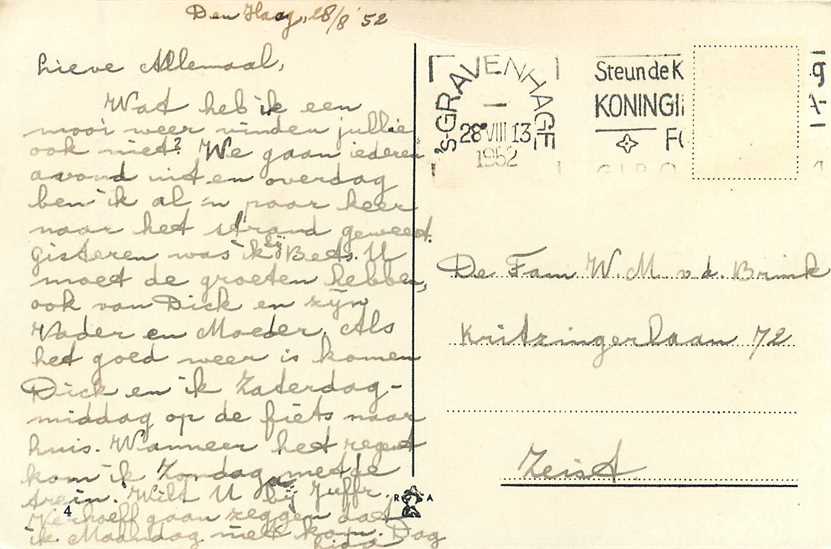 Den Haag, 28/8 '52
Lieve Allemaal,
Wat heb ik een
mooi weer vinden jullie
ook niet? We gaan iederen
avond uit en overdag
ben ik al 'n paar keer
naar het strand geweest.
gisteren was ik bij Bets. U
moet de groeten hebben,
ook van Dick en zijn
Vader en Moeder. Als
het goed weer is komen
Dick en ik Zaterdag-
middag op de fiets naar
huis. Wanneer het regent
kom ik Zondag met de
trein. Wilt U bij Juffr.
Verhoeff gaan zeggen dat
ik Maandag niet kom. Dag
's-GRAVENHAGE
28 VIII 13
1952
Steun de K
KONINGI
F
GIRO
g
A-
De Fam W. M. v. d. Brink
Kritzingerlaan 72
Zeist
R A
4